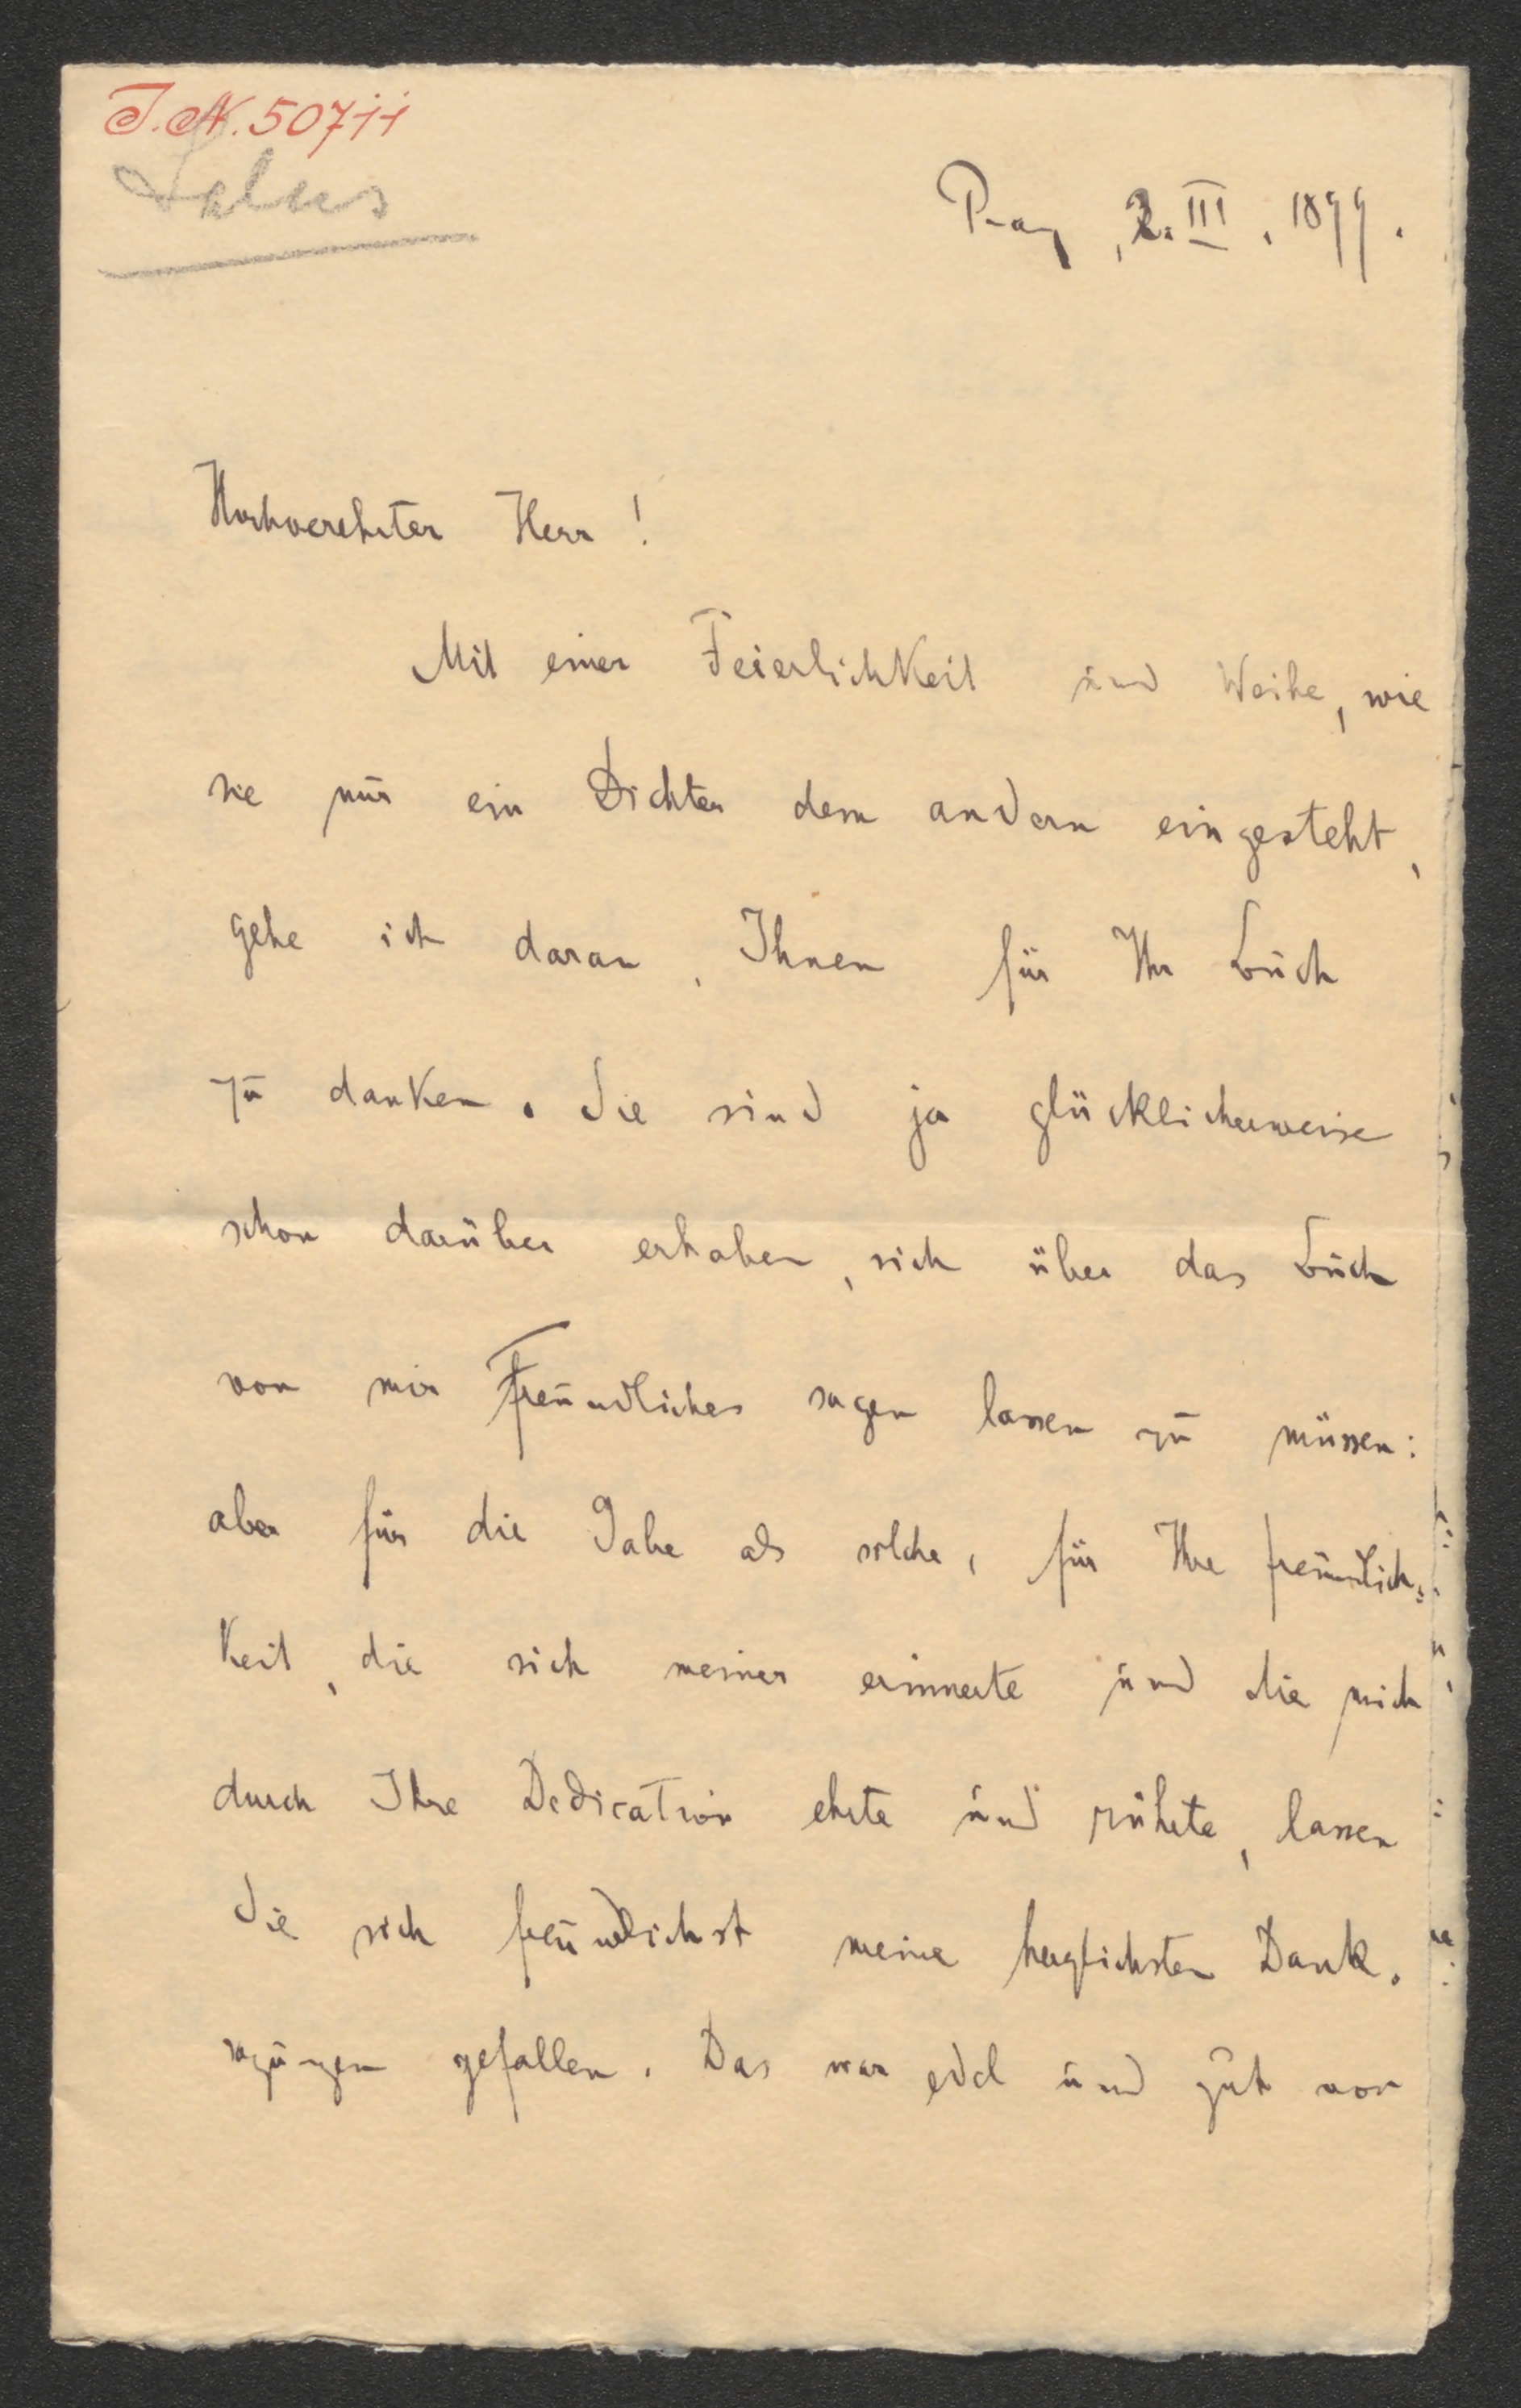 J.N. 50711
Salus
Prag, 2. III. 1899.
Hochverehrter Herr!
Mit einer Feierlichkeit und Weihe, wie
sie nur ein Dichter dem andern eingesteht,
gehe ich daran, Ihnen für Ihr Buch
zu danken. Sie sind ja glücklicherweise
schon darüber erhaben, sich über das Buch
von mir Freundliches sagen lassen zu müssen:
aber für die Gabe als solche, für Ihre freundlich-
keit, die sich meiner erinnerte und die mich
durch Ihre Dedication ehrte und rührte, lassen
Sie sich freundlichst meine herzlichsten Dank-
sagungen gefallen. Das war edel und gut von